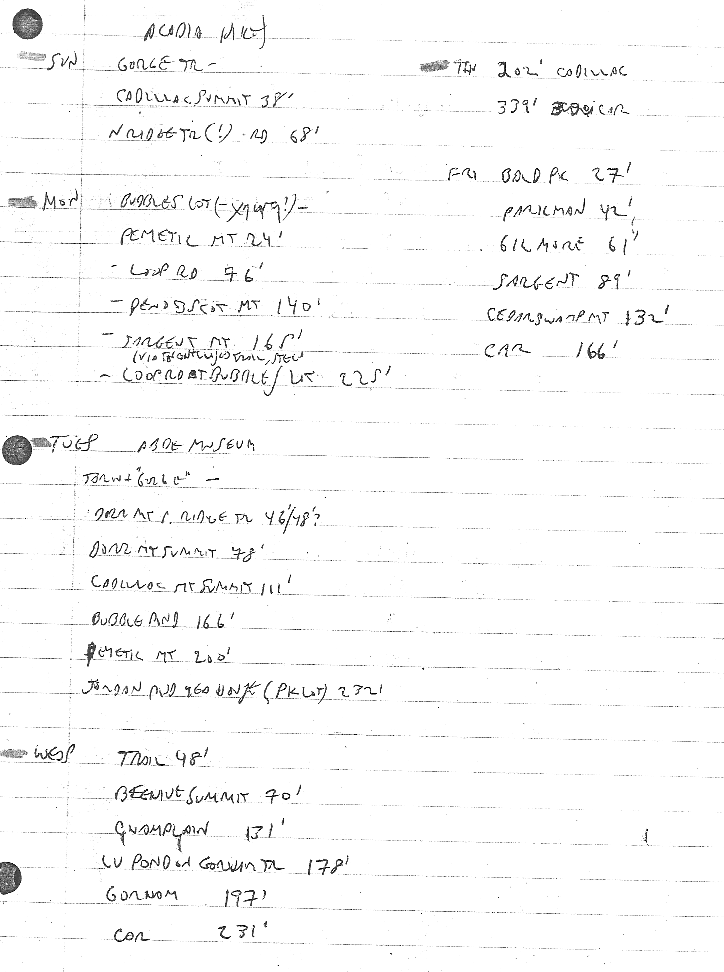 ACADIA
SUN GORGE TR -
CADILLAC SUMMIT 38'
N RIDGE TR (!) RD 68'
MON BUBBLES LOT (- !) -
PEMETIC MT 24'
- LOOP RD 76'
- PENOBSCOT MT 140'
- SARGENT MT 165'
(VIA
- LOOP RD AT BUBBLES LOT 225'
TUES ABBE MUSEUM
TARN + "GORGE" -
DORR MT S. RIDGE TR 46'/48'?
DORR MT SUMMIT 78'
CADILLAC MT SUMMIT 111'
BUBBLE PND 166'
PEMETIC MT 200'
JORDAN PND (PK LOT) 232'
WED TRAIL 48'
BEEHIVE SUMMIT 70'
CHAMPLAIN 131'
POND ON GORHAM TR 178'
GORHAM 197'
CAR 231'
TH 202' CADILLAC
339' CAR
FRI BALD PK 27'
PARKMAN 42'
GILMORE 61'
SARGENT 89'
CEDAR SWAMP MT 132'
CAR 166'